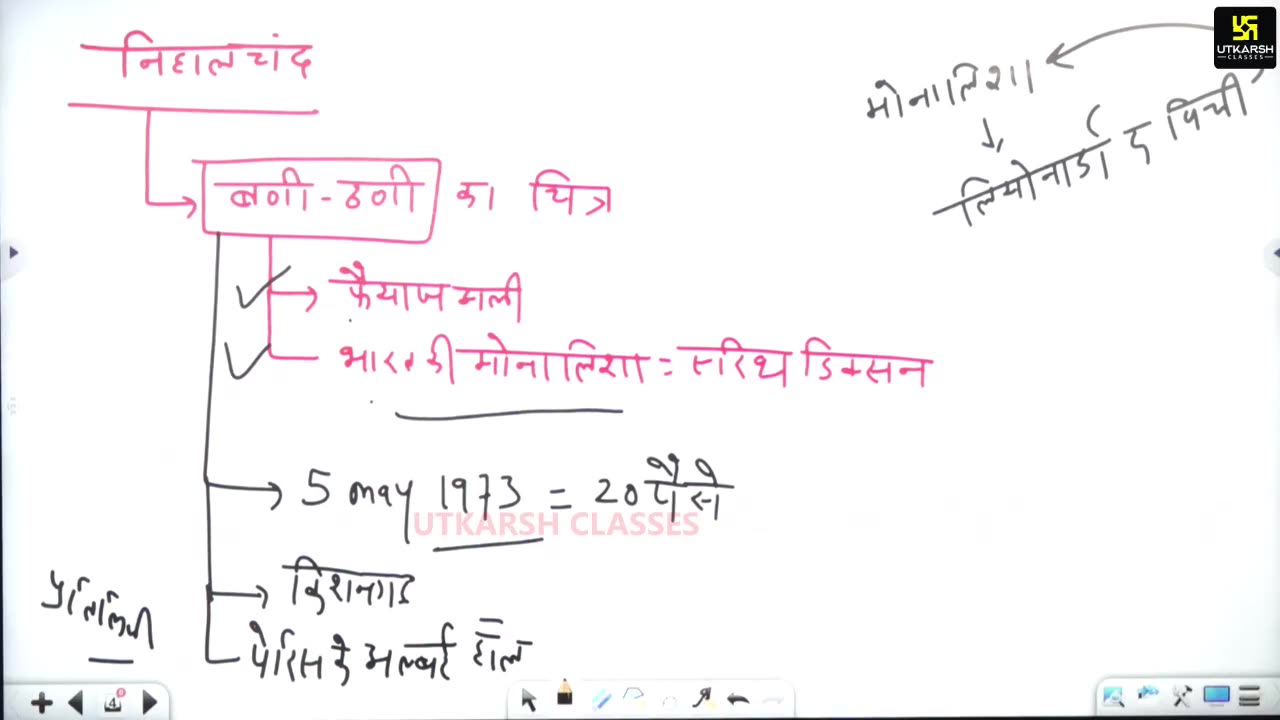 निहालचंद
बणी-ठणी का चित्र
फैयाज अली
भारत की मोनालिशा = एरिथ डिक्सन
5 may 1973 = 20 पैसे
किशनगढ
पेरिस के अल्बर्ट हॉल
प्रतिलिपी
मोनालिशा
लियोनार्डो द विंची
UTKARSH CLASSES
UTKARSH
CLASSES
4